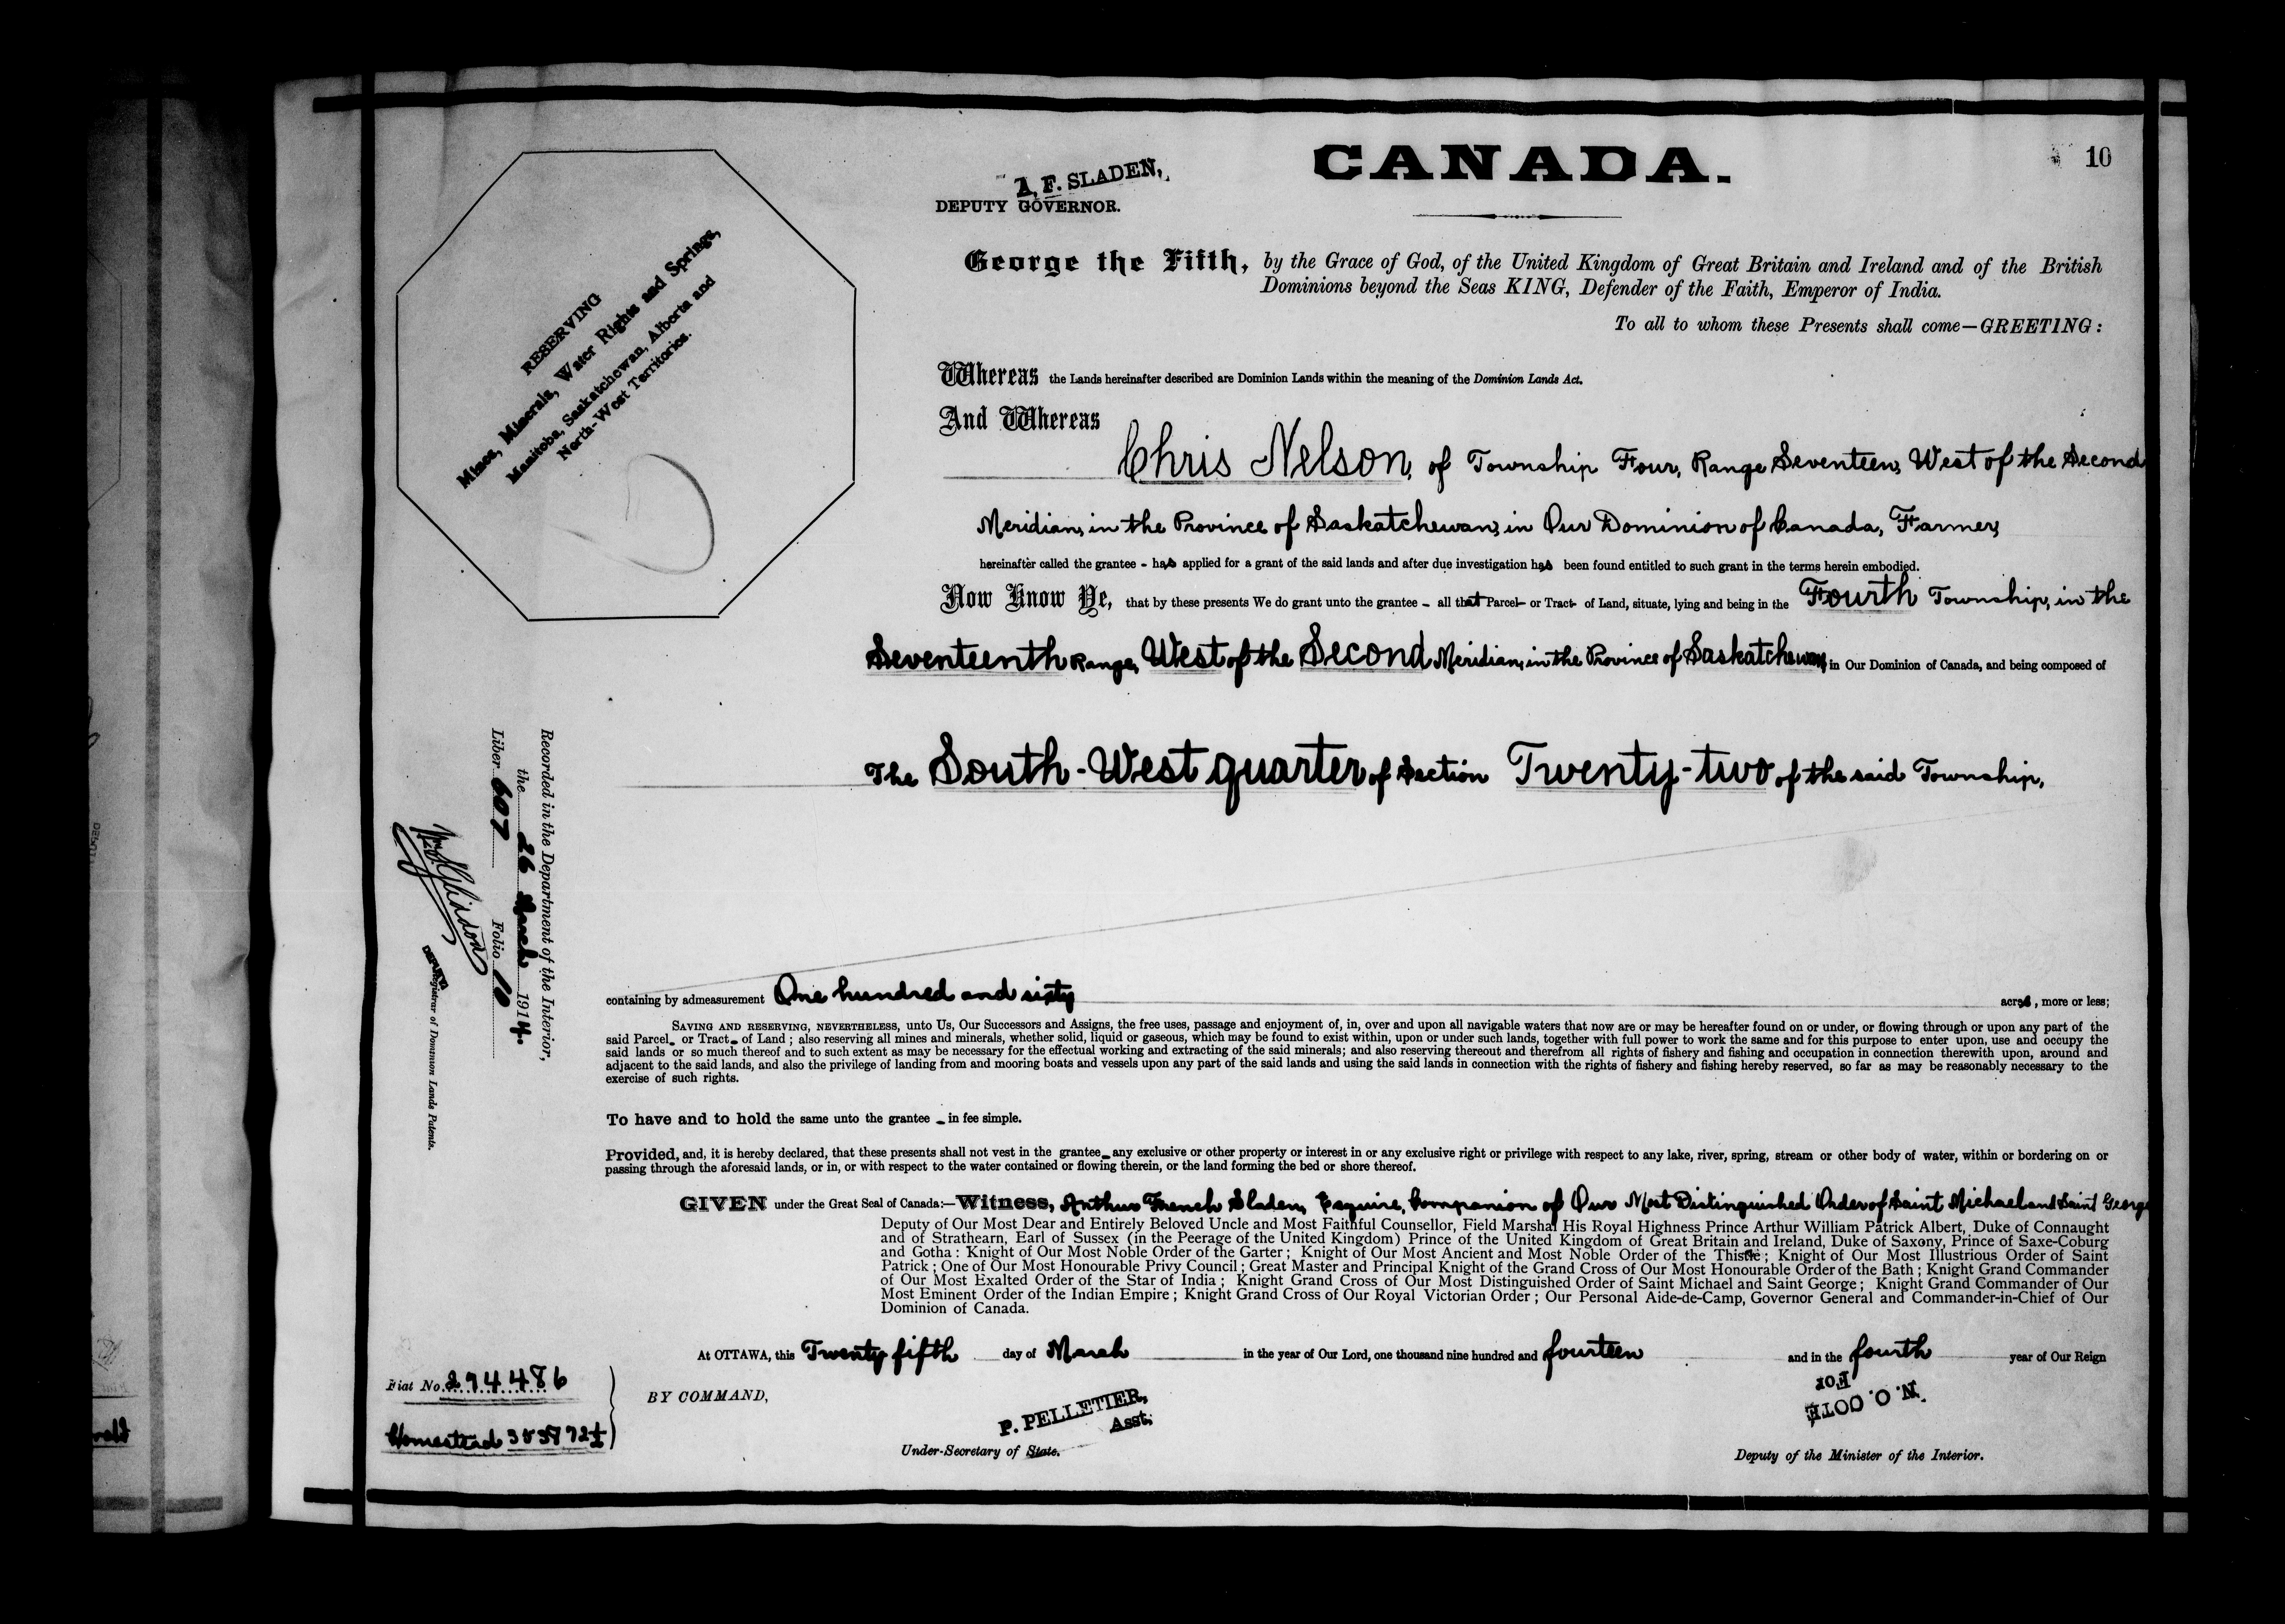 CANADA.
10
A. F. SLADEN,
DEPUTY GOVERNOR.
George the Fifth, by the Grace of God, of the United Kingdom of Great Britain and Ireland and of the British
Dominions beyond the Seas KING, Defender of the Faith, Emperor of India.
To all to whom these Presents shall come—GREETING:
RESERVING
Mines, Minerals, Water Rights and Springs,
Manitoba, Saskatchewan, Alberta and
North-West Territories.
Whereas the Lands hereinafter described are Dominion Lands within the meaning of the Dominion Lands Act.
And Whereas
Chris Nelson, of Township Four, Range Seventeen, West of the Second
Meridian, in the Province of Saskatchewan, in Our Dominion of Canada, Farmer,
hereinafter called the grantee - has applied for a grant of the said lands and after due investigation has been found entitled to such grant in the terms herein embodied.
Now Know Ye, that by these presents We do grant unto the grantee - all that Parcel- or Tract- of Land, situate, lying and being in the Fourth Township, in the
Seventeenth Range, West of the Second Meridian, in the Province of Saskatchewan, in Our Dominion of Canada, and being composed of
The South-West quarter of Section Twenty-two of the said Township,
Recorded in the Department of the Interior,
the 26 March 1914.
Liber 607 Folio 10
DEPUTY Registrar of Dominion Lands Patents.
containing by admeasurement One hundred and sixty acres, more or less;
SAVING AND RESERVING, NEVERTHELESS, unto Us, Our Successors and Assigns, the free uses, passage and enjoyment of, in, over and upon all navigable waters that now are or may be hereafter found on or under, or flowing through or upon any part of the
said Parcel- or Tract- of Land; also reserving all mines and minerals, whether solid, liquid or gaseous, which may be found to exist within, upon or under such lands, together with full power to work the same and for this purpose to enter upon, use and occupy the
said lands or so much thereof and to such extent as may be necessary for the effectual working and extracting of the said minerals; and also reserving thereout and therefrom all rights of fishery and fishing and occupation in connection therewith upon, around and
adjacent to the said lands, and also the privilege of landing from and mooring boats and vessels upon any part of the said lands and using the said lands in connection with the rights of fishery and fishing hereby reserved, so far as may be reasonably necessary to the
exercise of such rights.
To have and to hold the same unto the grantee - in fee simple.
Provided, and, it is hereby declared, that these presents shall not vest in the grantee- any exclusive or other property or interest in or any exclusive right or privilege with respect to any lake, river, spring, stream or other body of water, within or bordering on or
passing through the aforesaid lands, or in, or with respect to the water contained or flowing therein, or the land forming the bed or shore thereof.
GIVEN under the Great Seal of Canada:—Witness, Arthur French Sladen, Esquire, Companion of Our Most Distinguished Order of Saint Michael and Saint George
Deputy of Our Most Dear and Entirely Beloved Uncle and Most Faithful Counsellor, Field Marshal His Royal Highness Prince Arthur William Patrick Albert, Duke of Connaught
and of Strathearn, Earl of Sussex (in the Peerage of the United Kingdom) Prince of the United Kingdom of Great Britain and Ireland, Duke of Saxony, Prince of Saxe-Coburg
and Gotha: Knight of Our Most Noble Order of the Garter; Knight of Our Most Ancient and Most Noble Order of the Thistle; Knight of Our Most Illustrious Order of Saint
Patrick; One of Our Most Honourable Privy Council; Great Master and Principal Knight of the Grand Cross of Our Most Honourable Order of the Bath; Knight Grand Commander
of Our Most Exalted Order of the Star of India; Knight Grand Cross of Our Most Distinguished Order of Saint Michael and Saint George; Knight Grand Commander of Our
Most Eminent Order of the Indian Empire; Knight Grand Cross of Our Royal Victorian Order; Our Personal Aide-de-Camp, Governor General and Commander-in-Chief of Our
Dominion of Canada.
At OTTAWA, this Twenty fifth day of March in the year of Our Lord, one thousand nine hundred and fourteen and in the fourth year of Our Reign
Fiat No. 294486
Homestead
BY COMMAND,
P. PELLETIER,
Asst.
Under-Secretary of State.
For
N. O. COTE
Deputy of the Minister of the Interior.